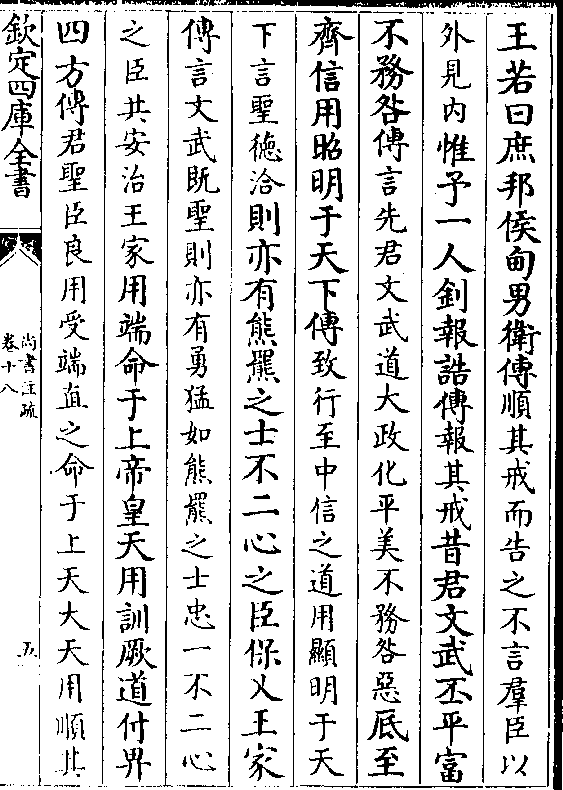 王若曰庶邦侯甸男衛傳順其戒而告之不言羣臣以
外見内惟予一人釗報誥傳報其戒昔君文武丕平富
不務咎傳言先君文武道大政化平美不務咎惡厎至
齊信用昭明于天下傳致行至中信之道用顯明于天
下言聖德洽則亦有熊羆之士不二心之臣保乂王家
傳言文武既聖則亦有勇猛如熊羆之士忠一不二心
之臣共安治王家用端命于上帝皇天用訓厥道付畀
四方傳君聖臣良用受端直之命于上天大天用順其
欽定四庫全書
尚書注疏
卷十八
五